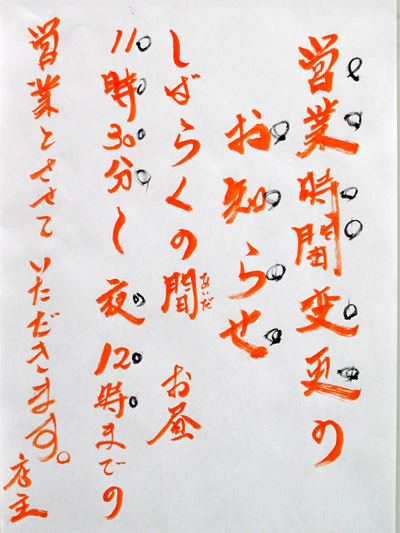 営業時間変更の
お知らせ
しばらくの間 お昼
あいだ
11時30分〜夜12時までの
営業とさせていただきます。
店主